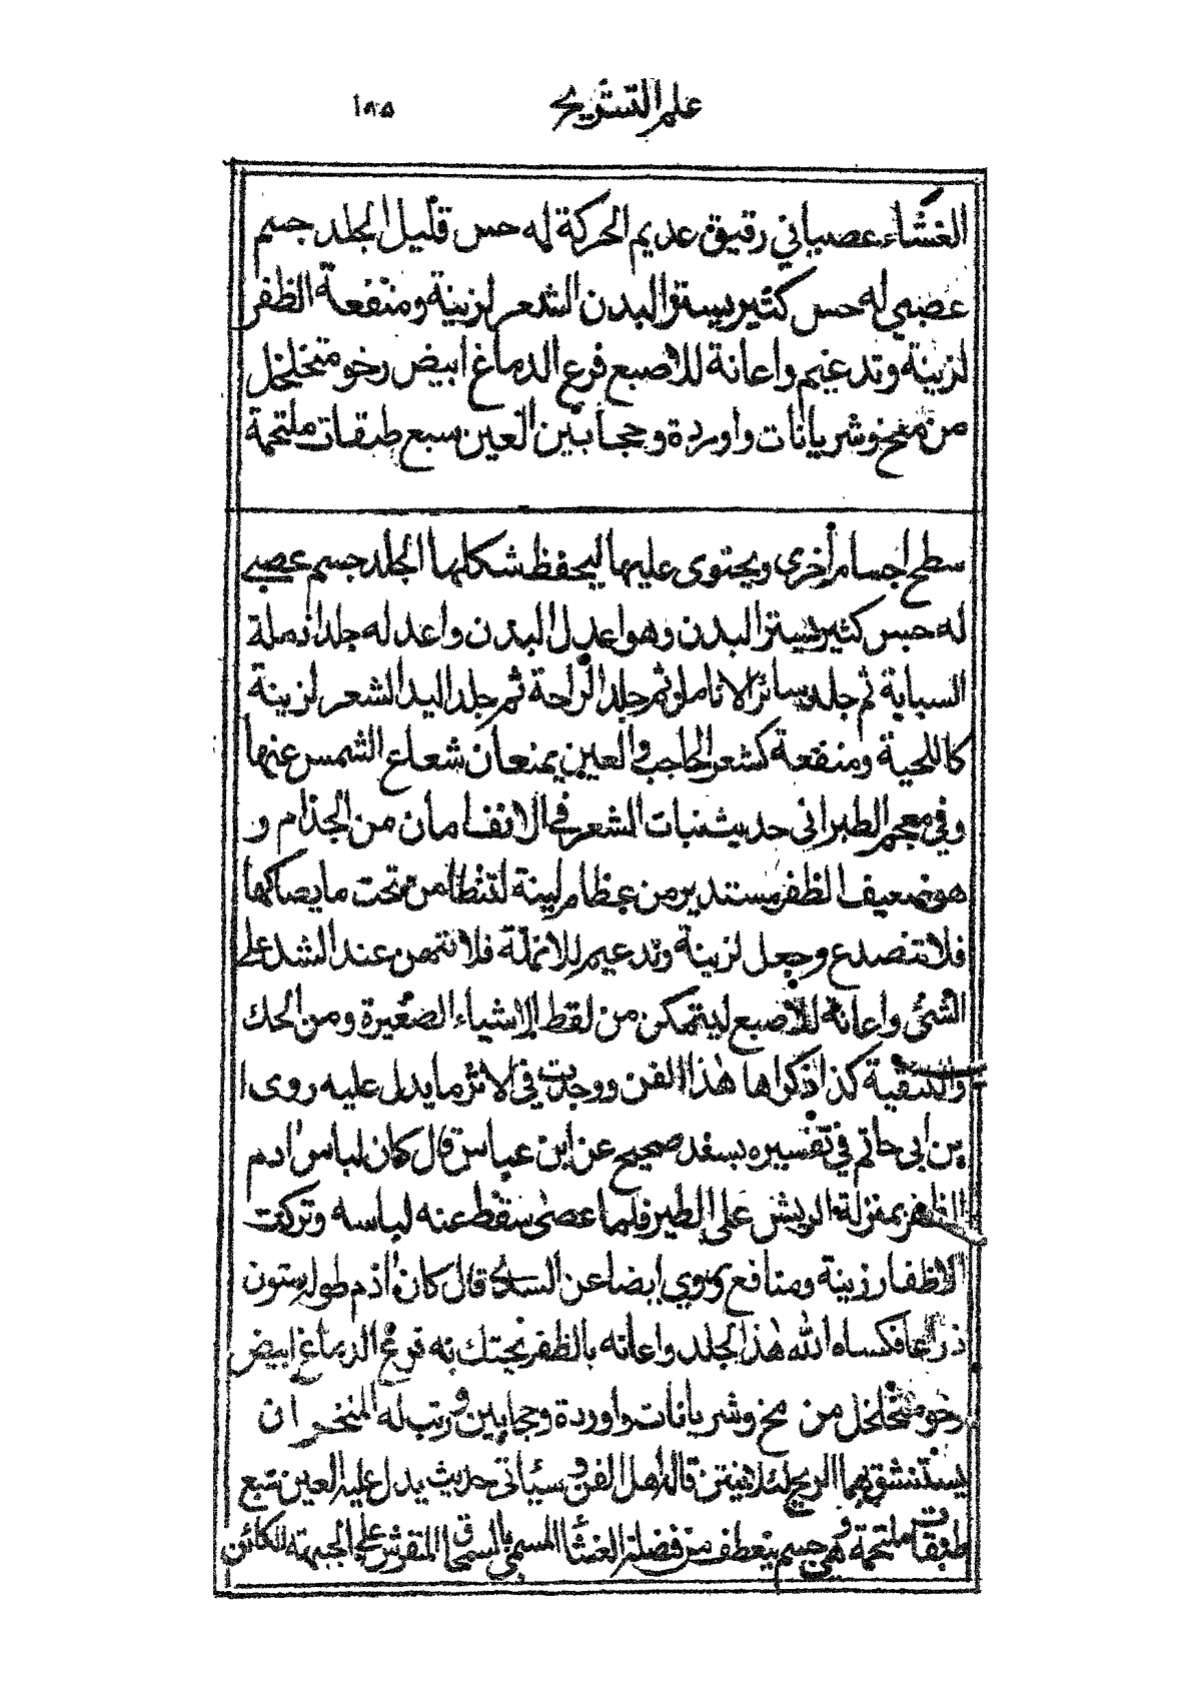 علم التشريح ١٨٥
الغشاء عصباني رقيق عديم الحركة له حس قليل الجلد جسم
عصبي له حس كثير يستر البدن الشعر لزينة ومنفعة الظفر
لزينة وتدعيم واعانة للاصبع فرع الدماغ ابيض رخو متخلخل
من مخ وشريانات واوردة وحجابين العين سبع طبقات ملتحمة
سطح اجسام أخرى ويحتوى عليها ليحفظ شكلها الجلد جسم عصبي
له حس كثير يستر البدن وهو اعدل البدن واعدله جلد انملة
السبابة ثم جلد سائر الانامل ثم جلد الراحة ثم جلد اليد الشعر لزينة
كاللحية ومنفعة كشعر الحاجب والعين يمنعان شعاع الشمس عنها
وفي معجم الطبراني حديث نبات الشعر في الانف امان من الجذام و
هو ضعيف الظفر مستدير من عظام لينة لتنطا من تحت ما يصاكها
فلا تنصدع وجعل لزينة وتدعيم للانملة فلا تنهن عند الشد على
الشئ واعانة للاصبع ليتمكن من لقط الاشياء الصغيرة ومن الحك
والتنقية كذا ذكر اهل هذا الفن ووجدت في الاثر ما يدل عليه روى ا
بن ابى حاتم في تفسيره بسند صحيح عن ابن عباس قال كان لباس ادم
الظفر بمنزلة الريش على الطير فلما عصى سقط عنه لباسه وتركت
الاظفار زينة ومنافع وروي ايضا عن السدى قال كان ادم طوله ستون
ذراعا فكساه الله هذا الجلد واعانه بالظفر يحتك به فرع الدماغ ابيض
رخو متخلخل من مخ وشريانات واوردة وحجابين ورتب له المنخران
يستنشق بهما الريح لئلا ينتن قاله اهل الفن وسيأتى حديث يدل عليه العين سبع
طبقات ملتحمة وهى جسم ينعطف من فضلة الغشا المسمى السمحاق المفروش على الجبهة الكائن